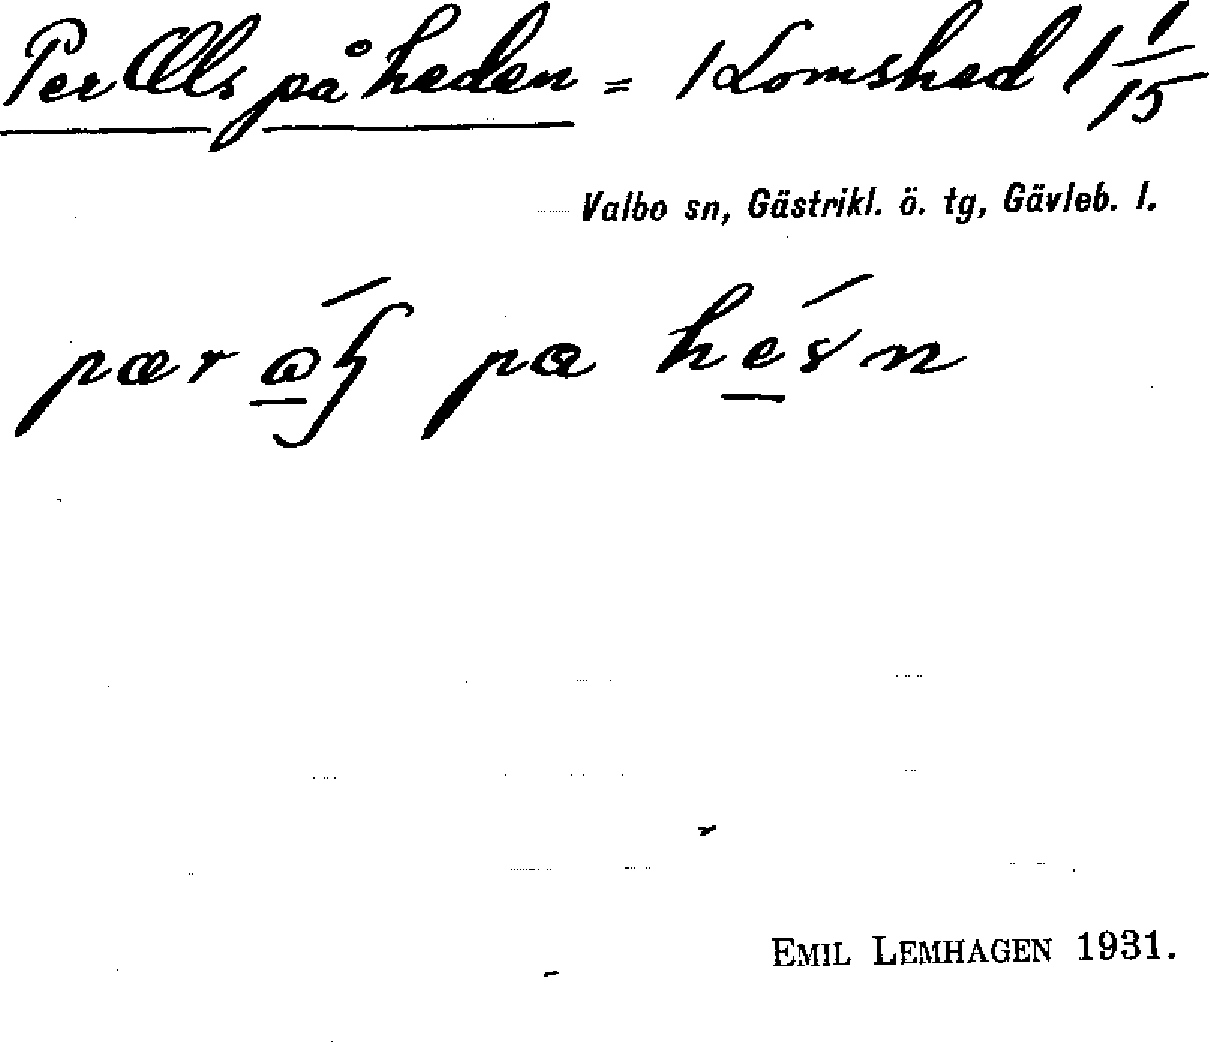 Per Ols på heden = Lomshed 1 1/15
Valbo sn, Gästrikl. ö. tg, Gävleb. l.
pær på
EMIL LEMHAGEN 1931.